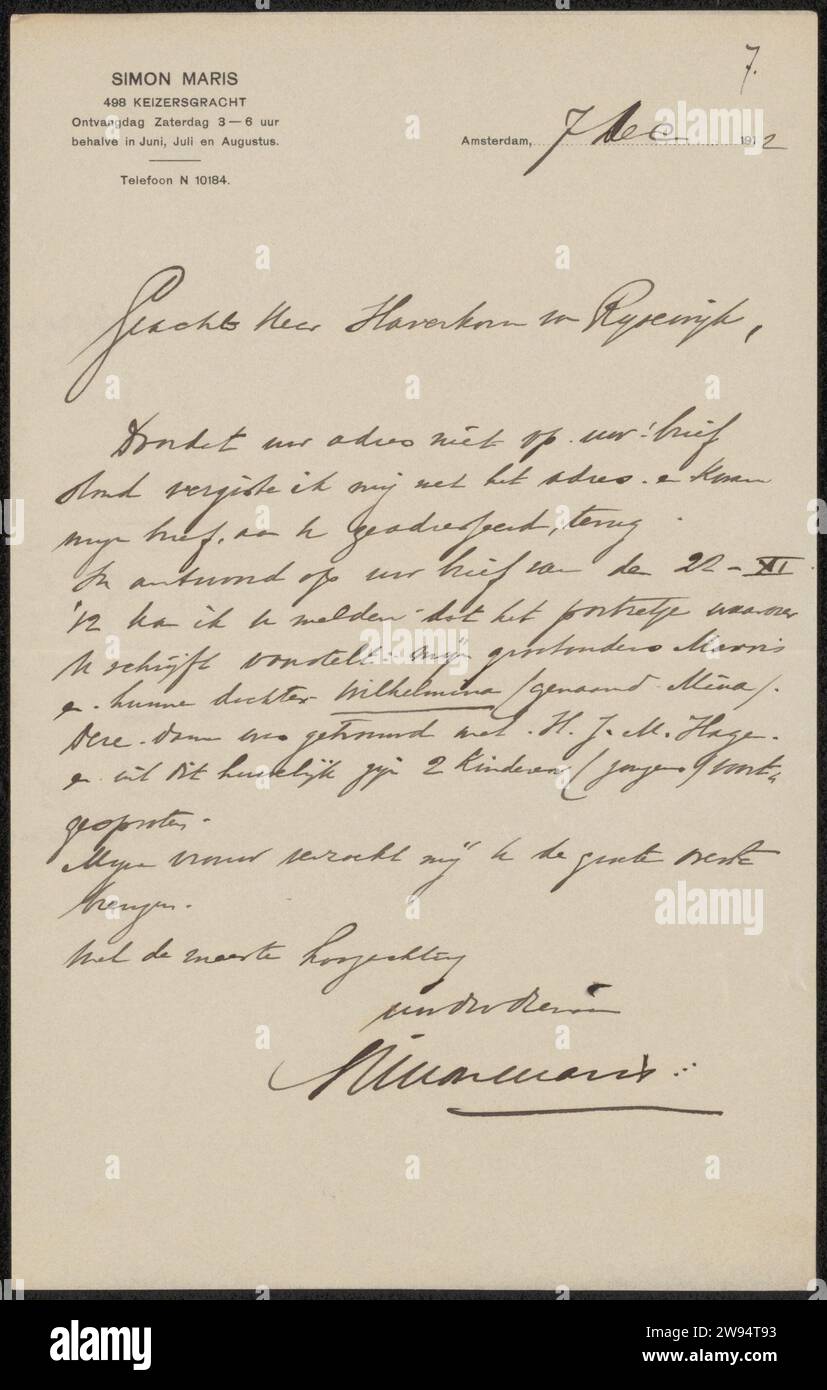 SIMON MARIS
498 KEIZERSGRACHT
Ontvangdag Zaterdag 3—6 uur
behalve in Juni, Juli en Augustus.
Telefoon N 10184.
7.
Amsterdam, 7 Dec 1912
Geachte Heer Haverkorn van Rysewijk,
Doordat uw adres niet op uw brief
stond vergiste ik mij met het adres en kwam
mijn brief, aan u geadresseerd, terug.
In antwoord op uw brief van de 22-XI
'12 kan ik u melden dat het portretje waarover
U schrijft voorstelt mijn grootouders Marris
en hunne dochter Wilhelmina (genaamd Mina).
Deze dame was getrouwd met H. J. M. Hage
en uit dit huwelijk zijn 2 kinderen (jongens) voort-
gesproten.
Mijn vrouw verzocht mij u de groete over te
brengen.
Met de meeste hoogachting
uw dw dienaar
Simon Maris
alamy
Image ID: 2W94T93
www.alamy.com